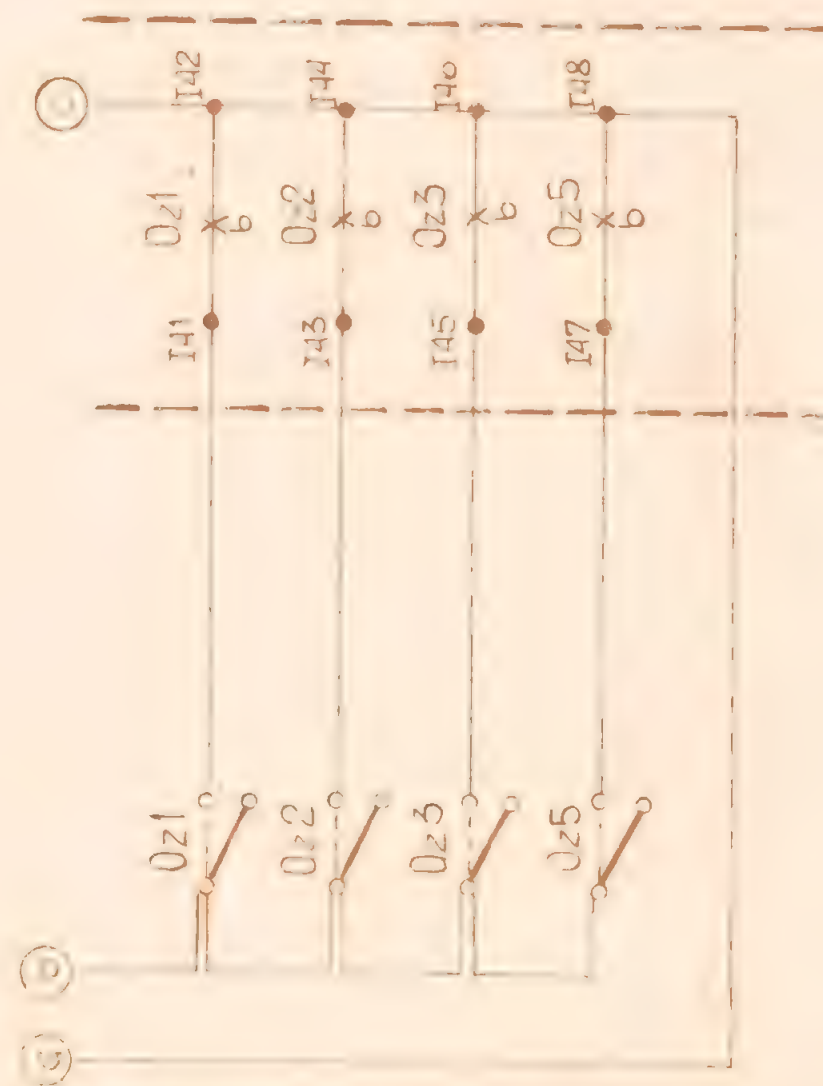 I42
I44
I46
I48
Oz1
Oz2
Oz3
Oz5
b
b
b
b
I41
I43
I45
I47
Oz1
Oz2
Oz3
Oz5